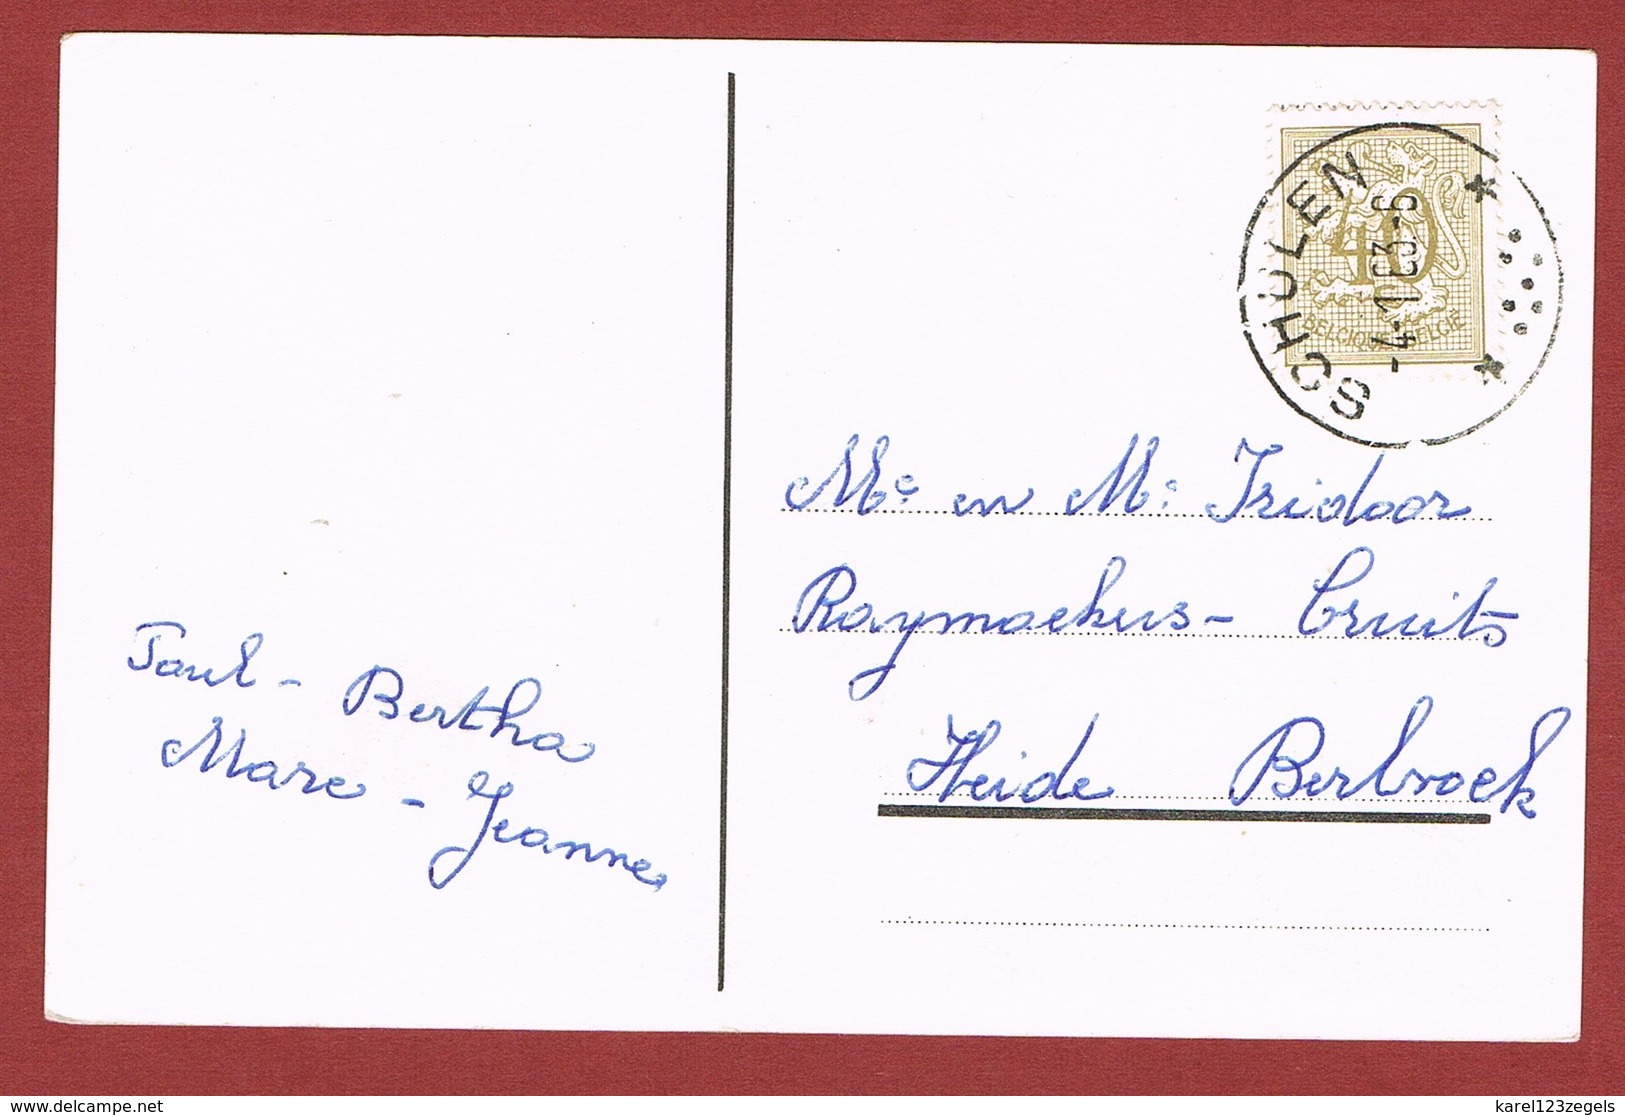 SCHULEN
-4-1 63-6
40
BELGIQUE-BELGIË
Mr en M: Isidoor
Raymaekers - Cruits
Heide Berbroek
Paul - Bertha
Marc - Jeanne
www.delcampe.net
karel123zegels